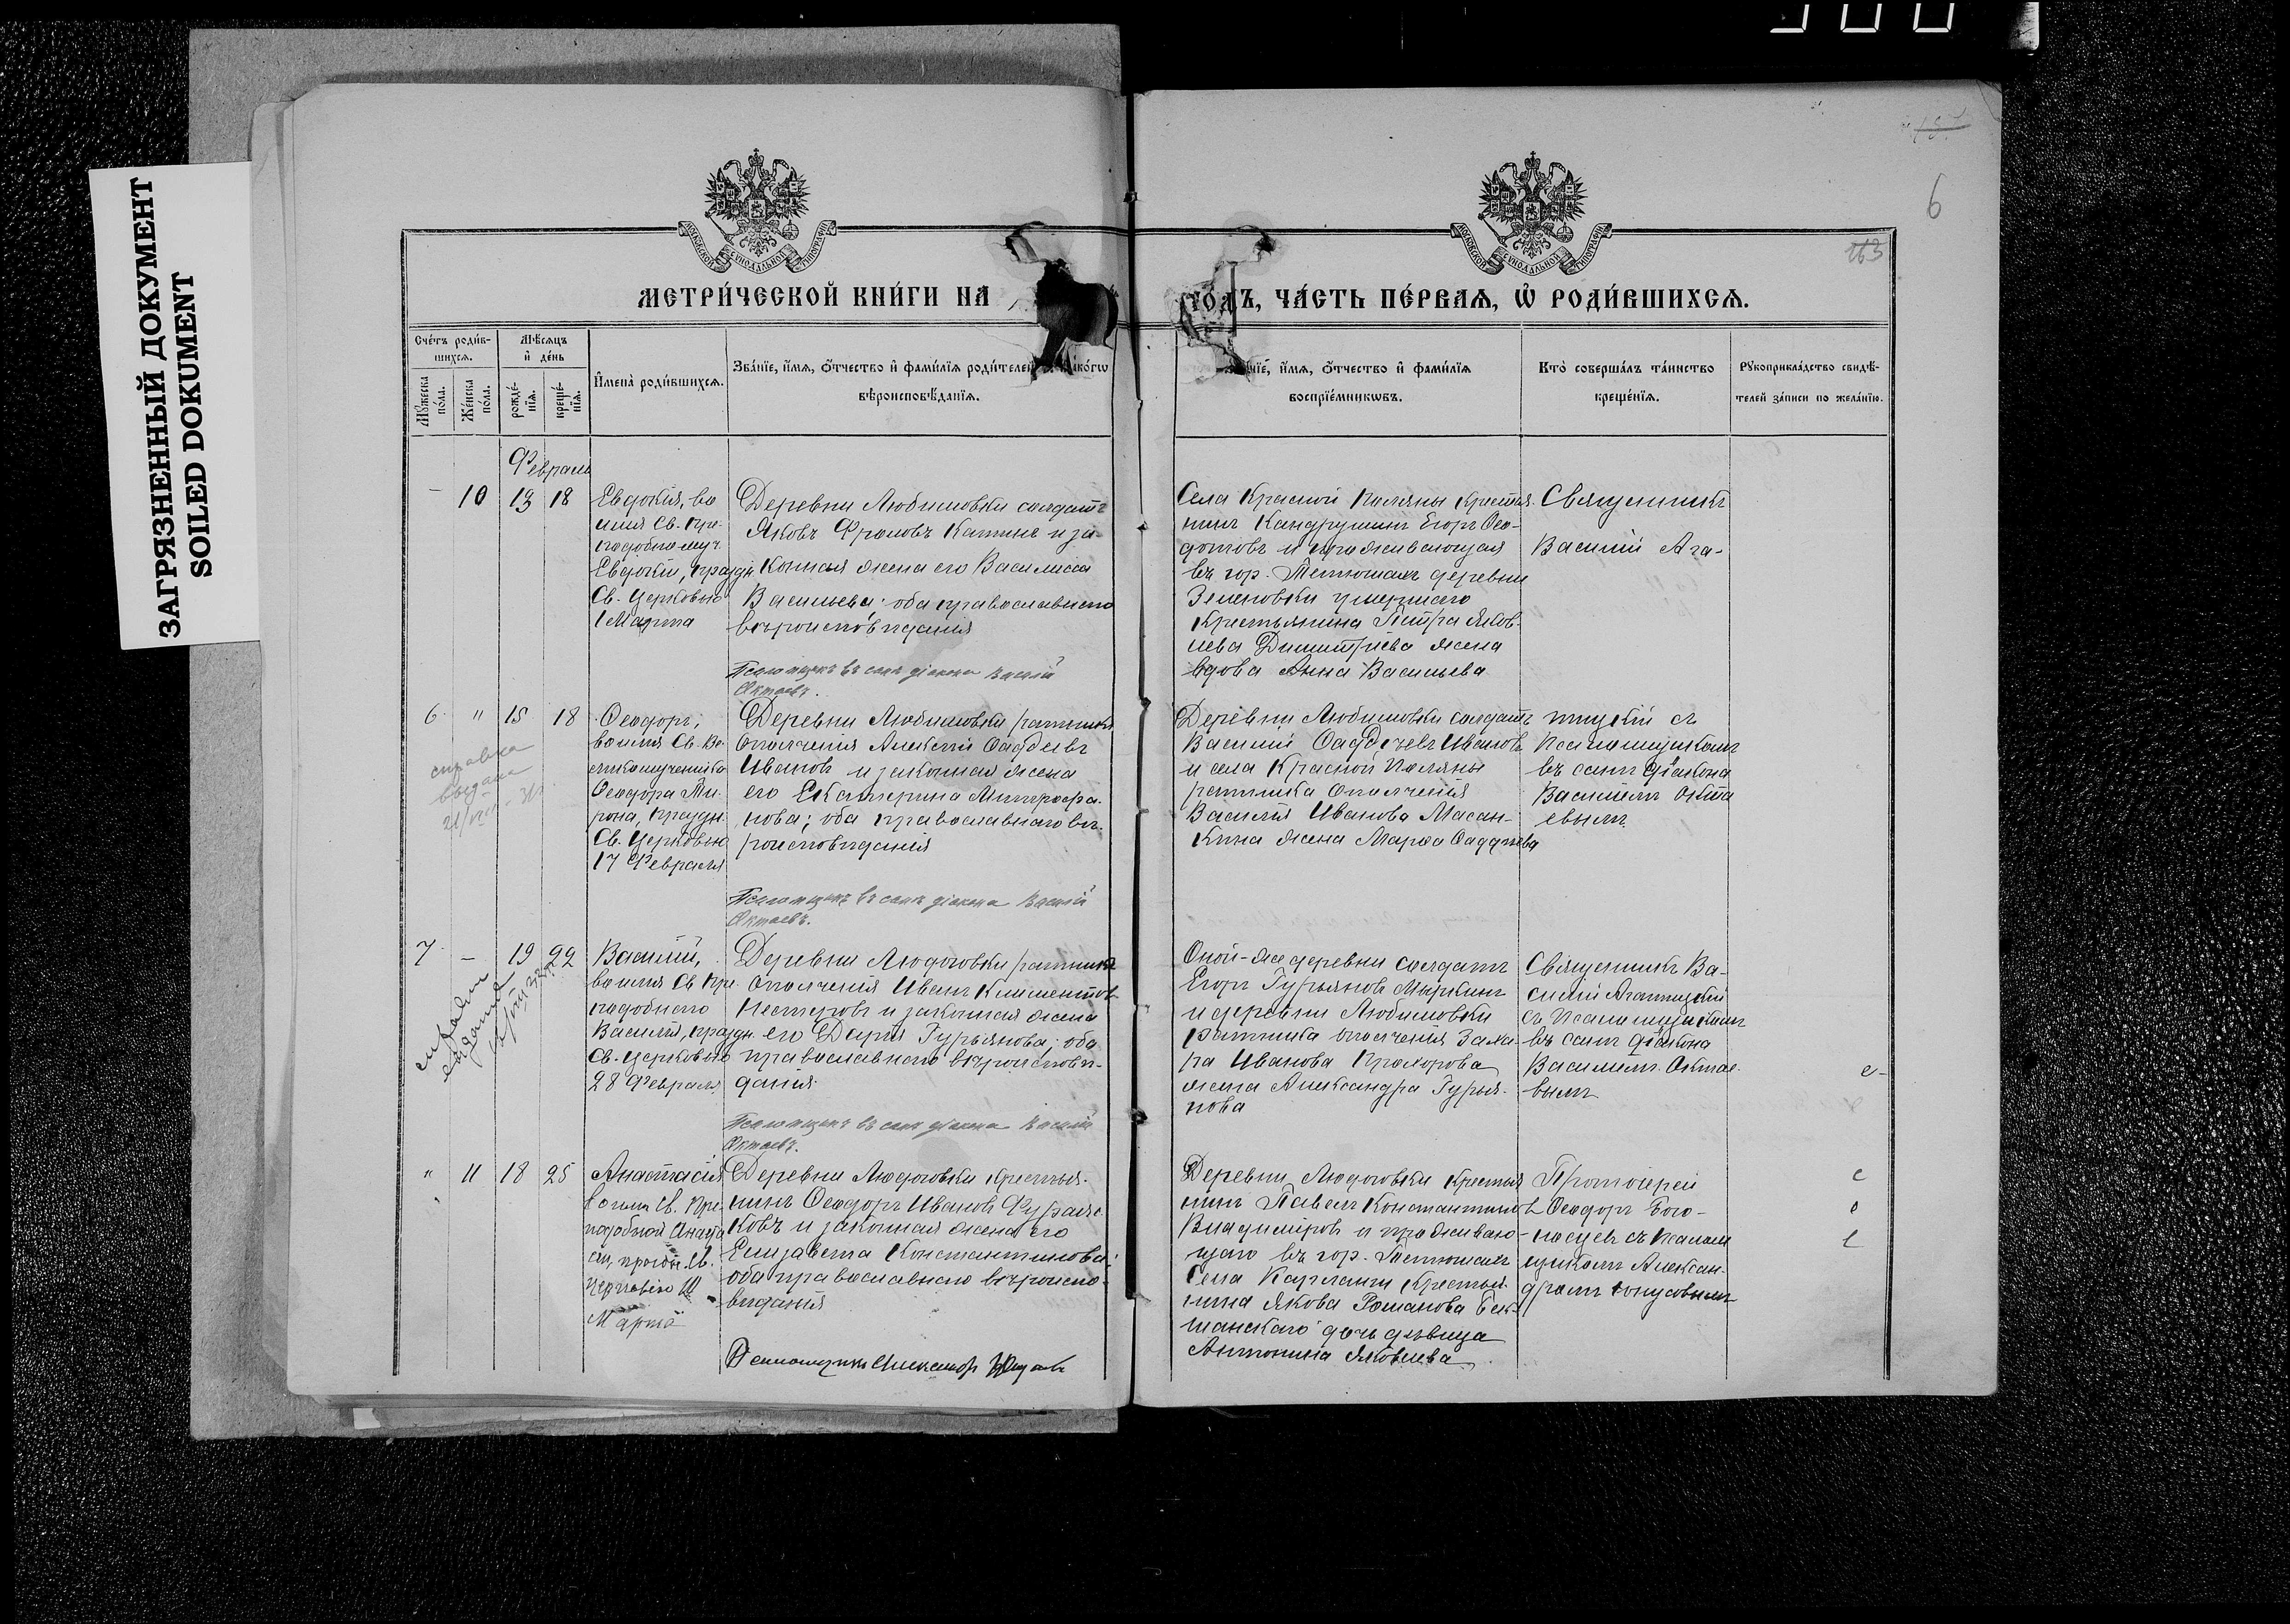 ЗАГРЯЗНЕННЫЙ ДОКУМЕНТ
SOILED DOKUMENT
6
263
МОСКОВСКОЙ СѴНОДАЛЬНОЙ ТИПОГРАФІИ
МОСКОВСКОЙ СѴНОДАЛЬНОЙ ТИПОГРАФІИ
МЕТРИ́ЧЕСКОЙ КНИ́ГИ НА
ГОДЪ, ЧА́СТЬ ПЕ́РВАѦ, Ѡ РОДИ́ВШИХСѦ.
Сче́тъ роди́в-
шихсѧ.
Мѣ́сѧцъ
и̑ де́нь
Мꙋ́жеска по́ла.
Же́нска по́ла.
рожде́-
нїѧ.
креще́-
нїѧ.
И̑мена̀ роди́вшихсѧ.
Зва́нїе, и̑́мѧ, ѻ̑́тчество и̑ фами́лїѧ роди́телей
како́гѡ
вѣроисповѣ́данїѧ.
и̑́мѧ, ѻ̑́тчество и̑ фами́лїѧ
воспрїе́мникѡвъ.
Кто̀ соверша́лъ та́инство
креще́нїѧ.
Рꙋкоприкла́дство свидѣ́-
телей за́писи по жела́нїю.
Февраль
– 10 13 18
Евдокія, во
имя Св. пре-
подобномуч.
Евдокіи, праздн.
Св. Церковью
1 Марта
Деревни Любимовки солдатъ
Яковъ Фроловъ Катинъ и за-
конная жена его Василисса
Васильева; оба православнаго
вѣроисповѣданія
Псаломщикъ въ санѣ діакона Василій
Октаевъ.
Села Красной Поляны крестья-
нинъ Кандрушинъ Егоръ Ѳео-
дотовъ и проживающая
въ гор. Тетюшахъ деревни
умершаго
крестьянина Петра Яков-
лева Димитріева жена
вдова Анна Васильева
Священникъ
Василій Ага-
6 " 15 18
справка
выдана
Ѳеодоръ,
во имя Св. Ве-
ликомученика
Ѳеодора Ти-
рона, праздн.
Св. Церковью
17 Февраля
Деревни Любимовки ратникъ
ополченія Алексѣй Ѳаддеевъ
Ивановъ и законная жена
его Екатерина Митрофа-
нова; оба православнаго вѣ-
роисповѣданія
Псаломщикъ въ санѣ діакона Василій
Октаевъ.
Деревни Любимовки солдатъ
Василій Ѳаддеевъ Ивановъ
и села Красной Поляны
ратника ополченія
Василія Иванова Масан-
кина жена Марѳа Ѳаддеева
пицкій съ
псаломщикомъ
въ санѣ діакона
Василіемъ Окта-
евымъ.
7 – 19 22
справка
выдана
Василій,
во имя Св. Пре-
подобнаго
Василія, праздн.
Св. Церковью
28 Февраля
Деревни Людоговки ратникъ
ополченія Иванъ Климентовъ
Нестеровъ и законная жена
его Дарія Гурьянова; оба
православнаго вѣроисповѣ-
данія.
Псаломщикъ въ санѣ діакона Василій
Октаевъ.
Оной-же деревни солдатъ
Егоръ Гурьяновъ Мыркинъ
и деревни Любимовки
ратника ополченія Заха-
ра Иванова Прохорова
жена Александра Гурья-
нова
Священникъ Ва-
силій Агапицкій
съ Псаломщикомъ
въ санѣ діакона
Василіемъ Октае-
вымъ
" 11 18 25
Анастасія
во имя Св. Пре-
подобной Анаста-
сіи, праздн. Св.
Церковію
Марта
Деревни Людоговки крестья-
нинъ Ѳеодоръ Ивановъ
и законная жена его
Елизавета Константинова;
оба православнаго вѣроиспо-
вѣданія
Псаломщикъ Александръ
Деревни Людоговки крестья-
нинъ Павелъ Константиновъ
Владиміровъ и проживаю-
щаго въ гор. Тетюшахъ
Села Карланги крестья-
нина Якова Романова
дочь дѣвица
Антонина Яковлева
Протоіерей
Ѳеодоръ Бого-
носцевъ съ псалом-
щикомъ Алексан-
дромъ